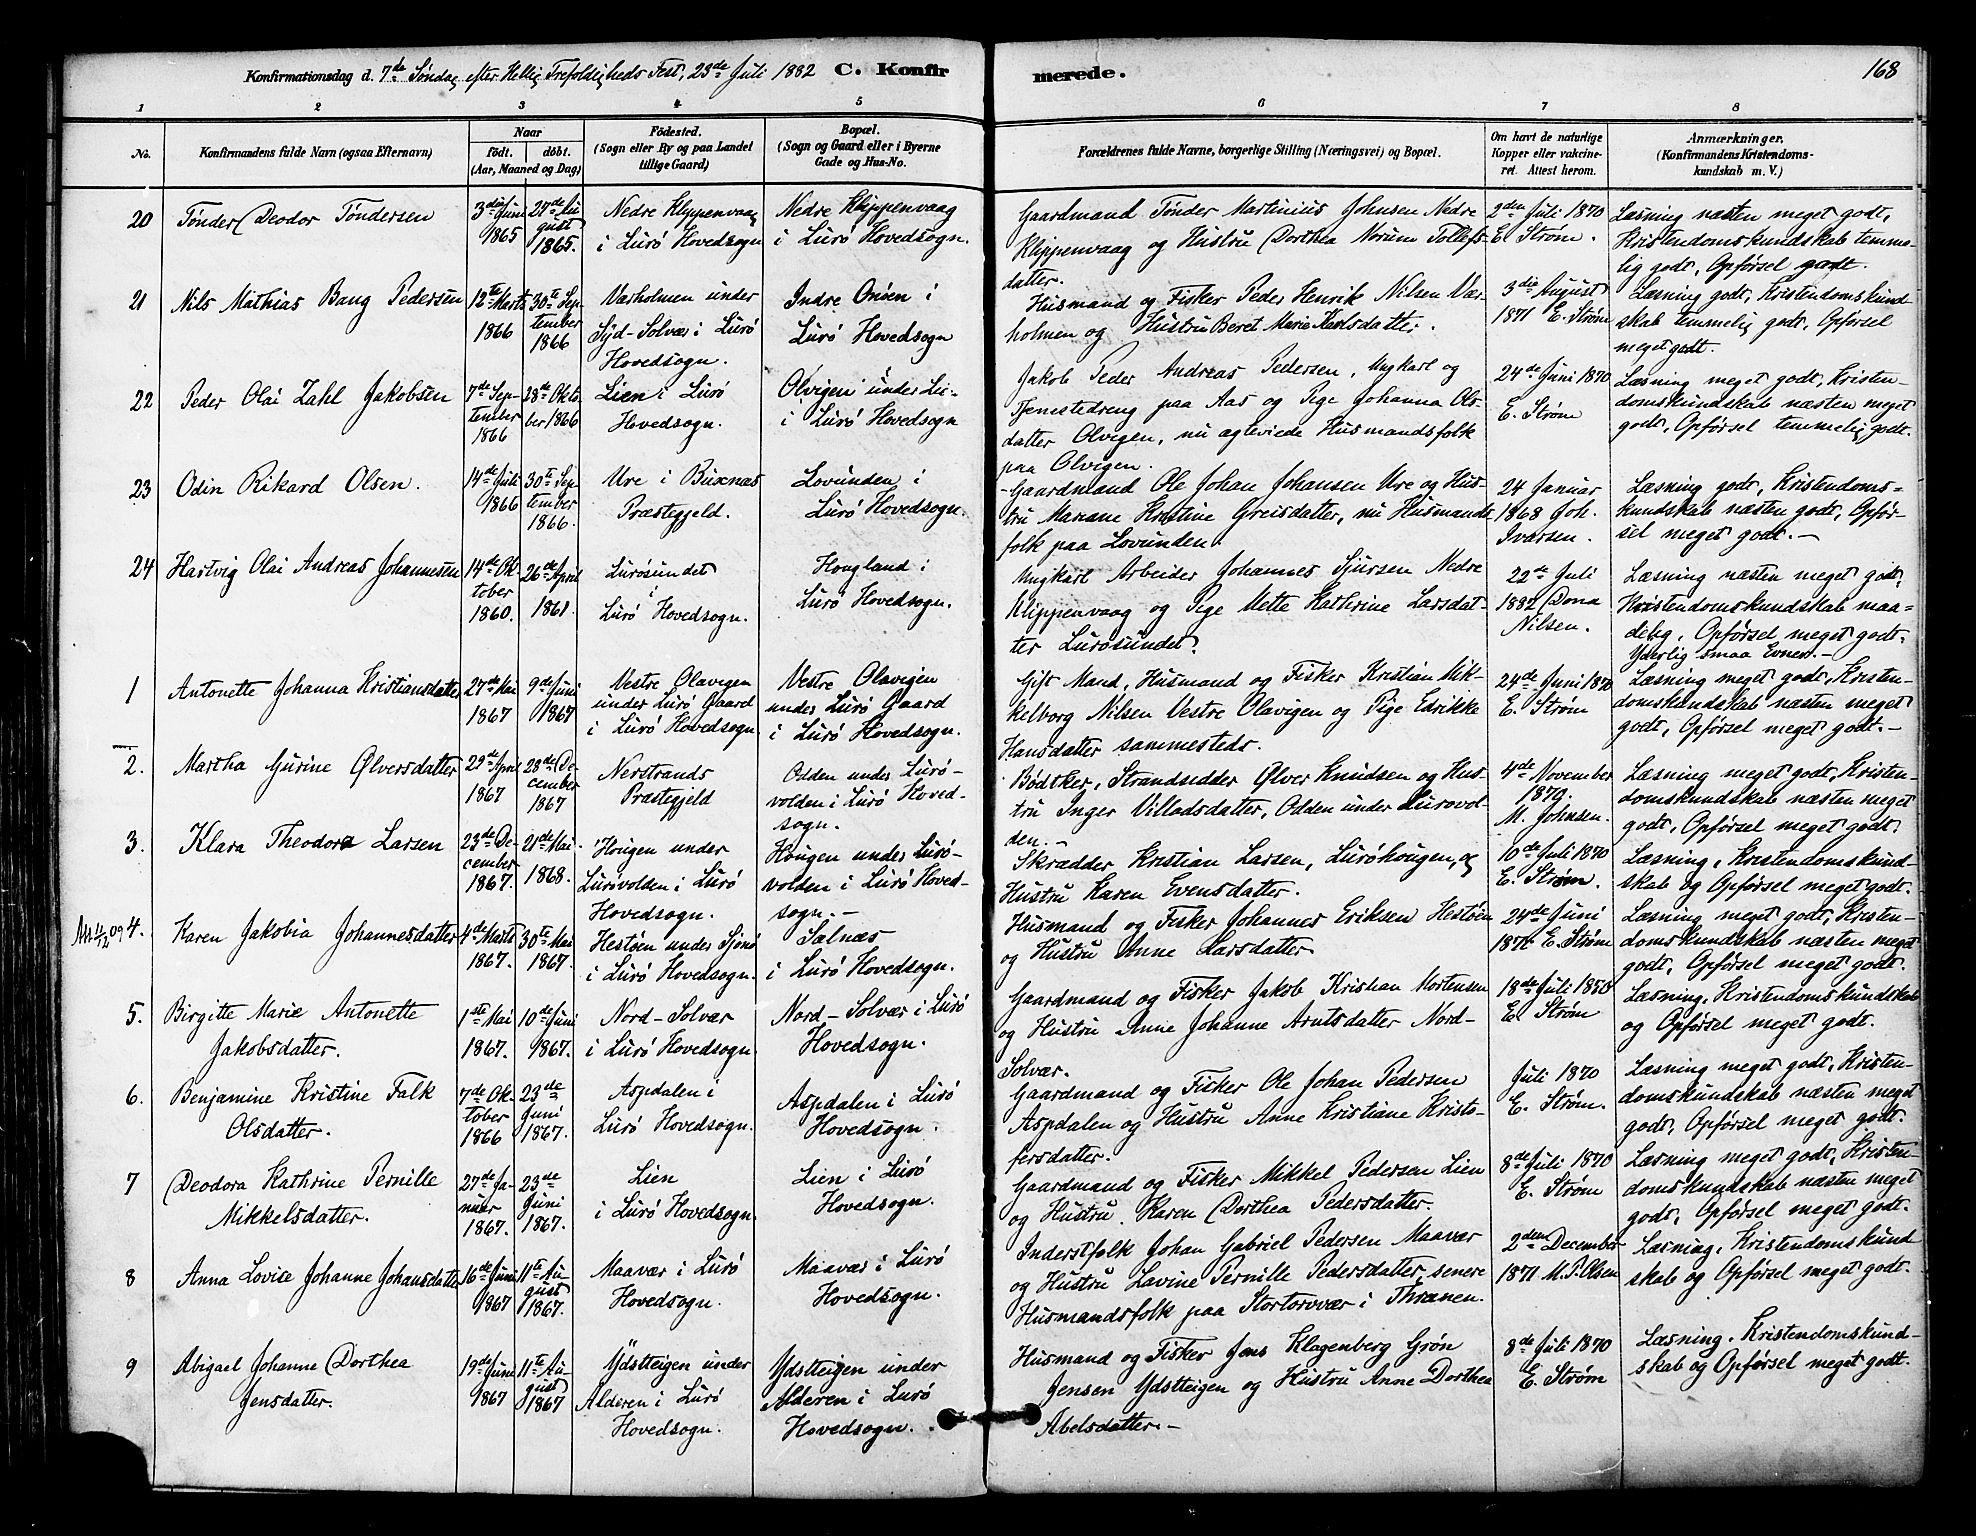 Konfirmationsdag d. 7de Søndag efter Hellig Trefoldigheds Fest, 23de Juli 1882 C. Konfirmerede. 168
1 2 3 4 5 6 7 8
No.
Konfirmandens fulde Navn (ogsaa Efternavn)
Naar
født. døbt.
(Aar, Maaned og Dag)
Födested.
(Sogn eller By og paa Landet
tillige Gaard)
Bopæl.
(Sogn og Gaard eller i Byerne
Gade og Hus-No.
Forældrenes fulde Navne, borgerlige Stilling (Næringsvei) og Bopæl.
Om havt de naturlige
Kopper eller vakcine-
ret. Attest herom.
Anmærkninger,
(Konfirmandens Kristendoms-
kundskab m. V.)
20
Tønder Deodor Tøndersen
3die Juni
1865
27de Au
gust
1865.
Nedre Klippenvaag
i Lurö Hovedsogn
Nedre Klippenvaag
i Lurö Hovedsogn.
Gaardmand Tønder Martinius Johnsen Nedre
Klippenvaag og Hustru Dorthea Norum Tollefs-
datter.
2den Juli 1870
E. Strøm.
Læsning næsten meget godt,
Kristendomskundskab temme-
lig godt, Opførsel godt.
21
Nils Mathias Bang Pedersen
12te Marts
1866
30te Sep
tember
1866
Varholmen under
Syd-Solvær i Lurö
Hovedsogn.
Indre Onöen i
Lurö Hovedsogn
Husmand og Fisker Peder Henrik Nilsen Vær-
holmen og Hustru Beret Marie Karlsdatter.
3die August
1871 E. Strøm
Læsning godt, Kristendomskund
skab temmelig godt, Opførsel
meget godt.
22
Peder Olai Zahl Jakobsen
7de Sep
tember
1866
28de Okto
ber 1866
Lien i Lurö
Hovedsogn.
Olvigen under Li-
i Lurö Hovedsogn
Jakob Peder Andreas Pedersen, Ungkarl og
Tjenestedreng paa Aas og Pige Johanna Ols-
datter Olvigen, nu ægteviede Husmandsfolk
paa Olvigen.
24de Juni 1870
E. Strøm
Læsning meget godt, Kristen-
domskundskab næsten meget
godt, Opførsel temmelig godt.
23
Odin Rikard Olsen.
14de Juli
1866
30te Sep
tember
1866.
Ure i Buxnæs
Præstegjeld.
Lovunden i
Lurö Hovedsogn.
Gaardmand Ole Johan Johansen Ure og Hus-
tru Mariane Kristine Greisdatter, nu Husmands
folk paa Lovunden.
24 Januar
1868 Joh.
Ivarsen.
Læsning godt, Kristendoms-
kundskab næsten godt, Opfør-
sel meget godt.—
24
Hartvig Olai Andreas Johannesen
14de Ok
tober
1860.
26de April
1861.
Lurösundet
i
Lurö Hovedsogn.
Hougland i
Lurö Hovedsogn.
Ungkarl Arbeider Johannes Sjursen Nedre
Klippenvaag og Pige Mette Kathrine Larsdat-
ter Lurösundet.
22de Juli
1882 Dona
Nilsen.
Læsning næsten meget godt,
Kristendomskundskab maa-
delig, Opførsel meget godt.
Yderlig smaa Evner.—
1
Antonette Johanna Kristiansdatter
27de Mai
1867
9de Juni
1867
Vestre Olavigen
under Lurö Gaard
i Lurö Hovedsogn.
Vestre Olavigen
under Lurö Gaard
i Lurö Hovedsogn.
Gift Mand, Husmand og Fisker Kristian Mik-
kelborg Nilsen Vestre Olavigen og Pige Edrikke
Hansdatter sammesteds.
24de Juni 1870
E. Strøm
Læsning meget godt, Kristen-
domskundskab næsten meget
godt, Opførsel meget godt.—
2.
Martha Gurine Ølversdatter
29de April
1867
28de De-
cember
1867
Nerstrands
Præstegjeld
Odden under Lurö-
volden i Lurö Hoved-
sogn.
Bödtker, Strandsidder Ølver Knudsen og Hus-
tru Inger Villadsdatter, Odden under Lurövol-
den.—
4de November
1879.
M. Johnsen.
Læsning meget godt, Kristen-
domskundskab næsten meget
godt, Opførsel meget godt.
3.
Klara Theodora Larsen
23de De-
cember
1867.
21de Mai
1868.
Hougen under
Lurövolden i Lurö
Hovedsogn.
Hougen under Lurö-
volden i Lurö Hoved-
sogn.—
Skrædder Kristian Larsen, Luröhougen, og
Hustru Karen Evensdatter.
10de Juli 1870
E. Strøm.
Læsning, Kristendomskund
skab og Opførsel meget godt.
4.
Karen Jakobia Johannesdatter
4de Marts
1867.
30te Mai
1867.
Hestöen under Sjonö
i Lurö Hovedsogn.
Sælnæs
i Lurö Hovedsogn.
Husmand og Fisker Johannes Eriksen Hestöen
og Hustru Anne Larsdatter.
24de Juni
1871 E. Strøm
Læsning meget godt, Kristen-
domskundskab næsten meget
godt, Opførsel meget godt.
5.
Birgitte Marie Antonette
Jakobsdatter.
1ste Mai
1867.
10de Juni
1867.
Nord-Solvær
i Lurö Hovedsogn.
Nord-Solvær i Lurö
Hovedsogn.
Gaardmand og Fisker Jakob Kristian Mortensen
og Hustru Anne Johanne Arntsdatter Nord-
Solvær.
18de Juli 1870
E. Strøm
Læsning, Kristendomskundskab
og Opførsel meget godt.
6.
Benjamine Kristine Falk
Olsdatter.
7de Ok-
tober
1866
23de
Juni
1867.
Aspdalen i
Lurö Hovedsogn.
Aspdalen i Lurö
Hovedsogn.
Gaardmand og Fisker Ole Johan Pedersen
Aspdalen og Hustru Anne Kristiane Kristo-
fersdatter.
Juli 1870
E. Strøm.
Læsning meget godt, Kristen-
domskundskab næsten meget
godt, Opførsel meget godt.
7
Deodora Kathrine Pernille
Mikkelsdatter.
27de Ja-
nuar
1867.
23de
Juni
1867.
Lien
i Lurö Hovedsogn.
Lien i Lurö
Hovedsogn.
Gaardmand og Fisker Mikkel Pedersen Lien
og Hustru Karen Dorthea Pedersdatter.
8de Juli 1870
E. Strøm
Læsning meget godt, Kristen-
domskundskab næsten meget
godt, Opførsel meget godt.
8
Anna Lovise Johanne Johansdatter
16de Juni
1867
11te Au-
gust
1867.
Maavær i Lurö
Hovedsogn.
Maavær i Lurö
Hovedsogn.
Inderstfolk Johan Gabriel Pedersen Maavær
og Hustru Lavine Pernille Pedersdatter, senere
Husmandsfolk paa Stortorvær i Thrænen.
2den December
1871 M. P. Olsen
Læsning, Kristendomskund
skab og Opførsel meget godt.
9
Abigael Johanne Dorthea
Jensdatter.
19de Juni
1867
11te Au-
gust
1867
Ydstteigen under
Alderen i Lurö
Hovedsogn.
Ydstteigen under
Alderen i Lurö
Hovedsogn.
Husmand og Fisker Jens Klagenberg Grøn
Jensen Ydstteigen og Hustru Anne Dorthea
Abelsdatter.—
8de Juli 1870
E. Strøm
Læsning, Kristendomskund-
skab og Opførsel meget godt.